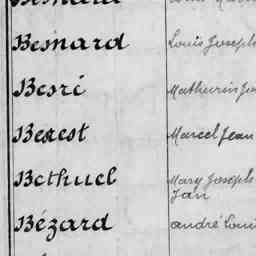 Besnard Louis Joseph
Besri Mathurin
Besrest Marcel Jean
Bethuel Mary Joseph
Jan
Bézard andré Loui